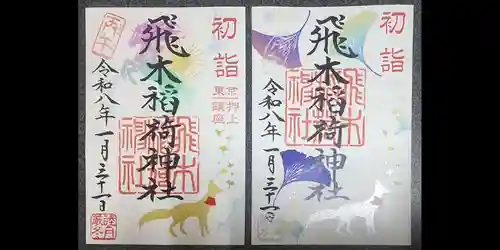 初詣
京押上
東鎮座
飛木稲荷神社
飛木稲荷神社
丙午
令和八年一月三十一日
初詣
飛木稲荷神社
飛木稲荷神社
令和八年一月三十一日